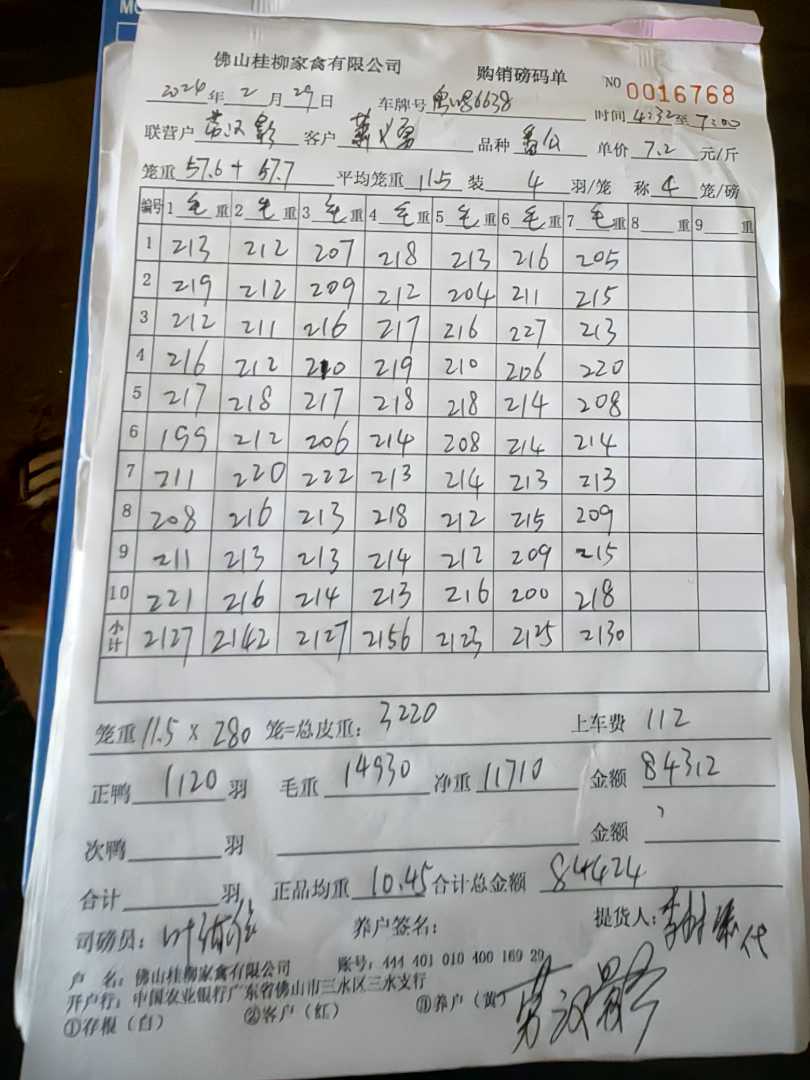 佛山桂柳家禽有限公司 购销磅码单 NO 0016768
2024年2月29日 车牌号 86638 时间4:32至7:00
联营户 黄汉影 客户 品种 番公 单价 7.2 元/斤
笼重 57.6 + 57.7 平均笼重 11.5 装 4 羽/笼 称 4 笼/磅
编号 1 毛 重 2 毛 重 3 毛 重 4 毛 重 5 毛 重 6 毛 重 7 毛 重 8 重 9 重
1 213 212 207 218 213 216 205
2 219 212 209 212 204 211 215
3 212 211 216 217 216 227 213
4 216 212 210 219 210 206 220
5 217 218 217 218 218 214 208
6 199 212 206 214 208 214 214
7 211 220 222 213 214 213 213
8 208 216 213 218 212 215 209
9 211 213 213 214 212 209 215
10 221 216 214 213 216 200 218
小计 2127 2142 2127 2156 2123 2125 2130
笼重 11.5 × 280 笼=总皮重: 3220 上车费 112
正鸭 1120 羽 毛重 14930 净重 11710 金额 84312
次鸭 羽 金额
合计 羽 正品均重 10.45 合计总金额 84424
司磅员: 养户签名: 提货人: 代
户 名: 佛山桂柳家禽有限公司 账号: 444 401 010 400 169 29
开户行: 中国农业银行广东省佛山市三水区三水支行
①存根（白） ②客户（红） ③养户（黄）